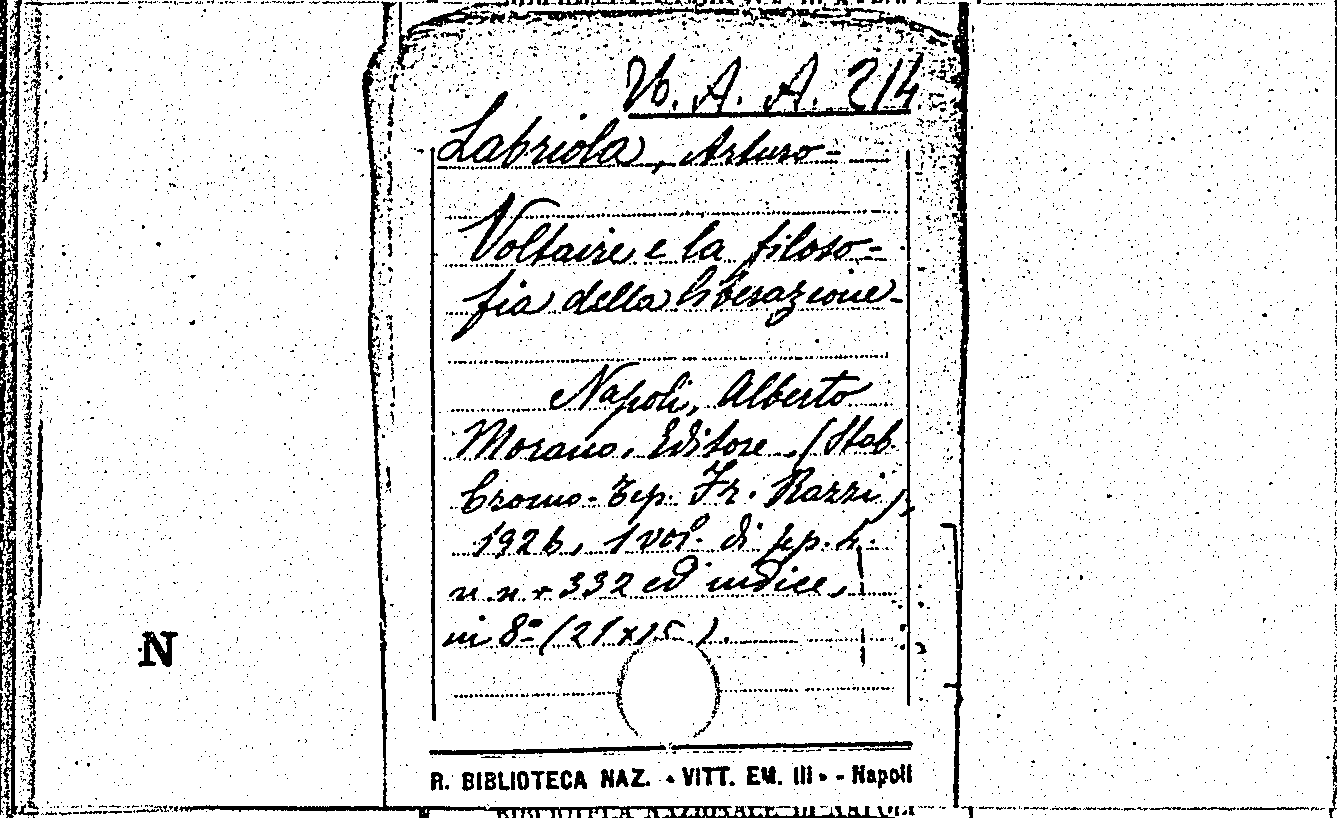 V6. A. A. 214
Labriola, Arturo-
Voltaire e la filoso-
fia della liberazione-
Napoli, Alberto
Morano. Editore. (Stab.
Cromo-Tip. Fr. Razzi),
1926, 1 vol. di pp. 4.
n.n + 332 ed indice,
in 8º (21x15).
N
R. BIBLIOTECA NAZ. • VITT. EM. III • - Napoli
BIBLIOTECA NAZIONALE DI NAPOLI